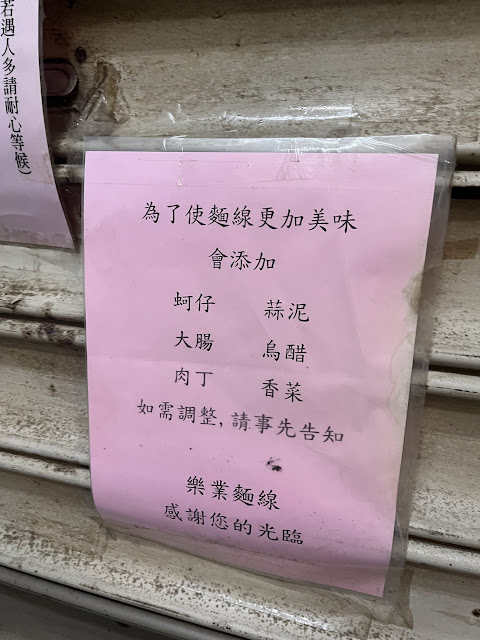 若遇人多請耐心等候)
為了使麵線更加美味
會添加
蚵仔 蒜泥
大腸 烏醋
肉丁 香菜
如需調整,請事先告知
樂業麵線
感謝您的光臨